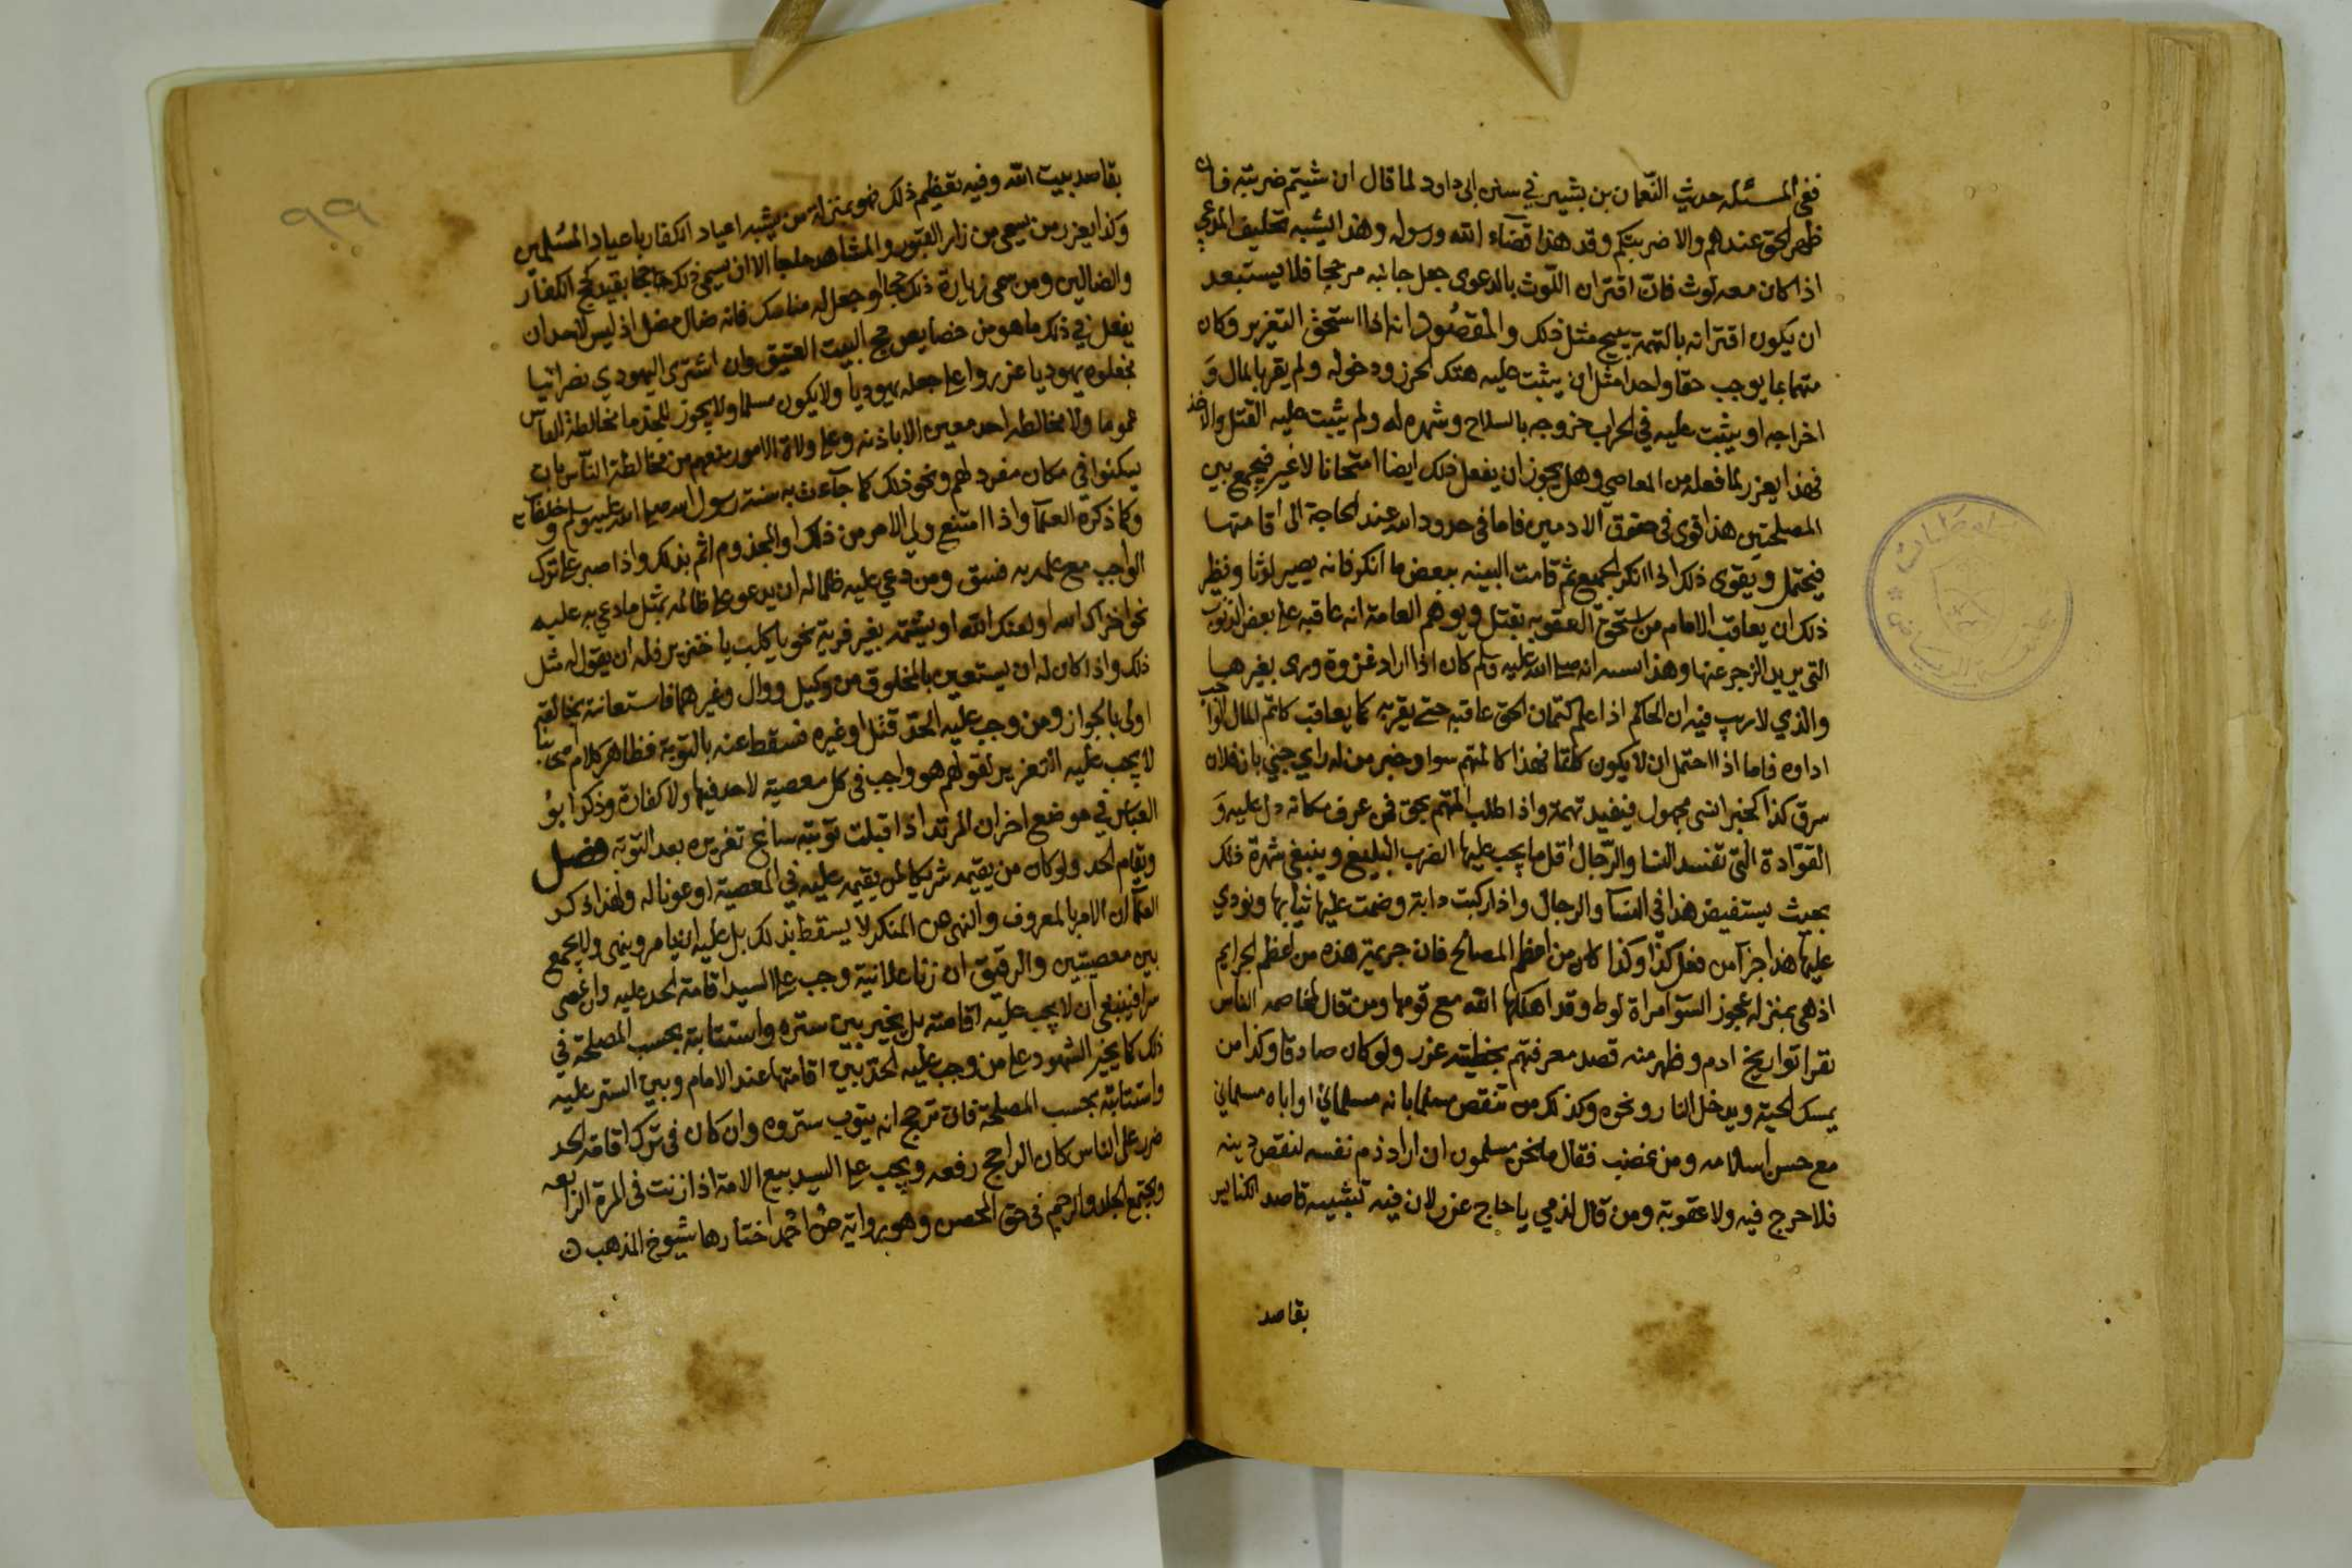 ففي المسئله حديث النعمان بن بشير في سنن ابى داود لما قال ان شيتم ضربته فان
ظهر الحق عندهم والا ضربتكم وقد هذا قضاء الله ورسوله وهذا يشبه تحليف المدعي
اذا كان معه لوث فان اقتران اللوث بالدعوى جعل جانبه مرجحا فلا يستبعد
ان يكون اقترانه بالتهمة يبيح مثل ذلك والمقصود انه اذا استحق التعزير وكان
متهما بما يوجب حقا واحدا مثل ان يثبت عليه هتك الحرز ودخوله ولم يقر بالمال و
اخراجه او يثبت عليه في الحراب خروجه بالسلاح وشهره له ولم يثبت عليه القتل والاخذ
فهذا يعزر لما فعله من المعاصي وهل يجوز ان يفعل ذلك ايضا امتحانا لا غير فيجمع بين
المصلحتين هذا قوى فى حقوق الادميين فاما فى حدود الله عند الحاجة الى اقامتها
فيحتمل ويقوى ذلك اذا انكر الجميع ثم قامت البينه ببعض ما انكر فانه يصير لوثا ونظير
ذلك ان يعاقب الامام من استحق العقوبه بقتل ويوهم العامة انه عاقبه على بعض الذنوب
التى يريد الزجر عنها وهذا انه صلى الله عليه وسلم كان اذا اراد غزوة ورى بغيرها
والذي لا ريب فيه ان الحاكم اذا علم كتمان الحق عاقبه حتى يقر به كما يعاقب كاتم المال الواجب
اداوه فاما اذا احتمل ان لا يكون كاتما فهذا كالمتهم سوا وخبر من له راي جني بان فلان
سرق كذا كخبر انسى مجهول فيفيد تهمة واذا طلب المتهم بحق فمن عرف مكانه دل عليه و
القوادة التى تفسد النسا والرجال اقل ما يجب عليها الضرب البليغ وينبغي شهرة ذلك
بحيث يستفيض هذا في النسا والرجال واذا ركبت دابة وضمت عليها ثيابها ونودي
عليها هذا جزاء من فعل كذا وكذا كان من اعظم المصالح فان جريمة هذه من اعظم الجرايم
اذ هى بمنزلة عجوز السو امراة لوط وقد اهلكها الله مع قومها ومن قال لمخاصمه الناس
تقرا تواريخ ادم وظهر منه قصد معرفتهم بخطيته عزر ولو كان صادقا وكذا من
يمسك الحية ويدخل النار ونحوه وكذلك من تنقص مسلما بانه مسلماني او اباه مسلماني
مع حسن اسلامه ومن غضب فقال ما نحن مسلمون ان اراد ذم نفسه لنقص دينه
فلا حرج فيه ولا عقوبة ومن قال لذمي يا حاج عزر لان فيه تشبيه قاصد الكنايس
بقاصد
٩٩
بقاصد بيت الله وفيه تعظيم ذلك فهو بمنزلة من يشبه اعياد الكفار باعياد المسلمين
وكذا يعزر من يسمى من زار القبور والمشاهد حاجا الا ان يسمى ذلك حاجا بقيد كحج الكفار
والضالين ومن سمى زيارة ذلك حجا او جعل له مناسك فانه ضال مضل اذ ليس لاحد ان
يفعل في ذلك ما هو من خصايص حج البيت العتيق وان اشترى اليهودي نصرانيا
فجعلوه يهوديا عزروا على جعله يهوديا ولا يكون مسلما ولا يجوز للجذما مخالطة الناس
عموما ولا مخالطة احد معين الا باذنه وعلى ولاة الامور منعهم من مخالطة الناس بان
يسكنوا في مكان مفرد لهم ونحو ذلك كما جآءت به سنة رسول الله صلى الله عليه وسلم وخلفائه
وكما ذكره العلمآ واذا امتنع ولي الامر من ذلك او المجذوم اثم بذلك واذا صبر على ترك
الواجب مع علمه به فسق ومن دعي عليه ظلما له ان يدعو على ظالمه بمثل ما دعي به عليه
نحو اخزاك الله او لعنك الله او يشتمه بغير فرية نحو يا كلب يا خنزير فله ان يقول له مثل
ذلك واذا كان له ان يستعين بالمخلوق من وكيل ووال وغيرهما فاستعانته بخالقه
اولى بالجواز ومن وجب عليه الحد قتل او غيره فسقط عنه بالتوبة فظاهر كلام اصحابنا
لا يجب عليه التعزير لقولهم هو واجب في كل معصية لا حد فيها ولا كفارة وذكر ابو
العباس في موضع اخر ان المرتد اذا قبلت توبته ساغ تعزيره بعد التوبة فصل
ويقام الحد ولو كان من يقيمه شريكا لمن يقيمه عليه في المعصية او عونا له ولهذا ذكر
العلمآ ان الامر بالمعروف والنهى عن المنكر لا يسقط بذلك بل عليه ان يامر وينهى ولا يجمع
بين معصيتين والرقيق ان زنا علانية وجب على السيد اقامة الحد عليه وان عصى
سرا فينبغي ان لا يجب عليه اقامته بل يخير بين ستره واستتابته بحسب المصلحة في
ذلك كما يخير الشهود على من وجب عليه الحد بين اقامتها عند الامام وبين الستر عليه
واستتابته بحسب المصلحة فان ترجح انه يتوب ستروه وان كان في ترك اقامة الحد
ضرر على الناس كان الراجح رفعه ويجب على السيد بيع الامة اذا زنت فى المرة الرابعه
ويجتمع الجلد والرجم فى حق المحصن وهو رواية عن احمد اختارها شيوخ المذهب